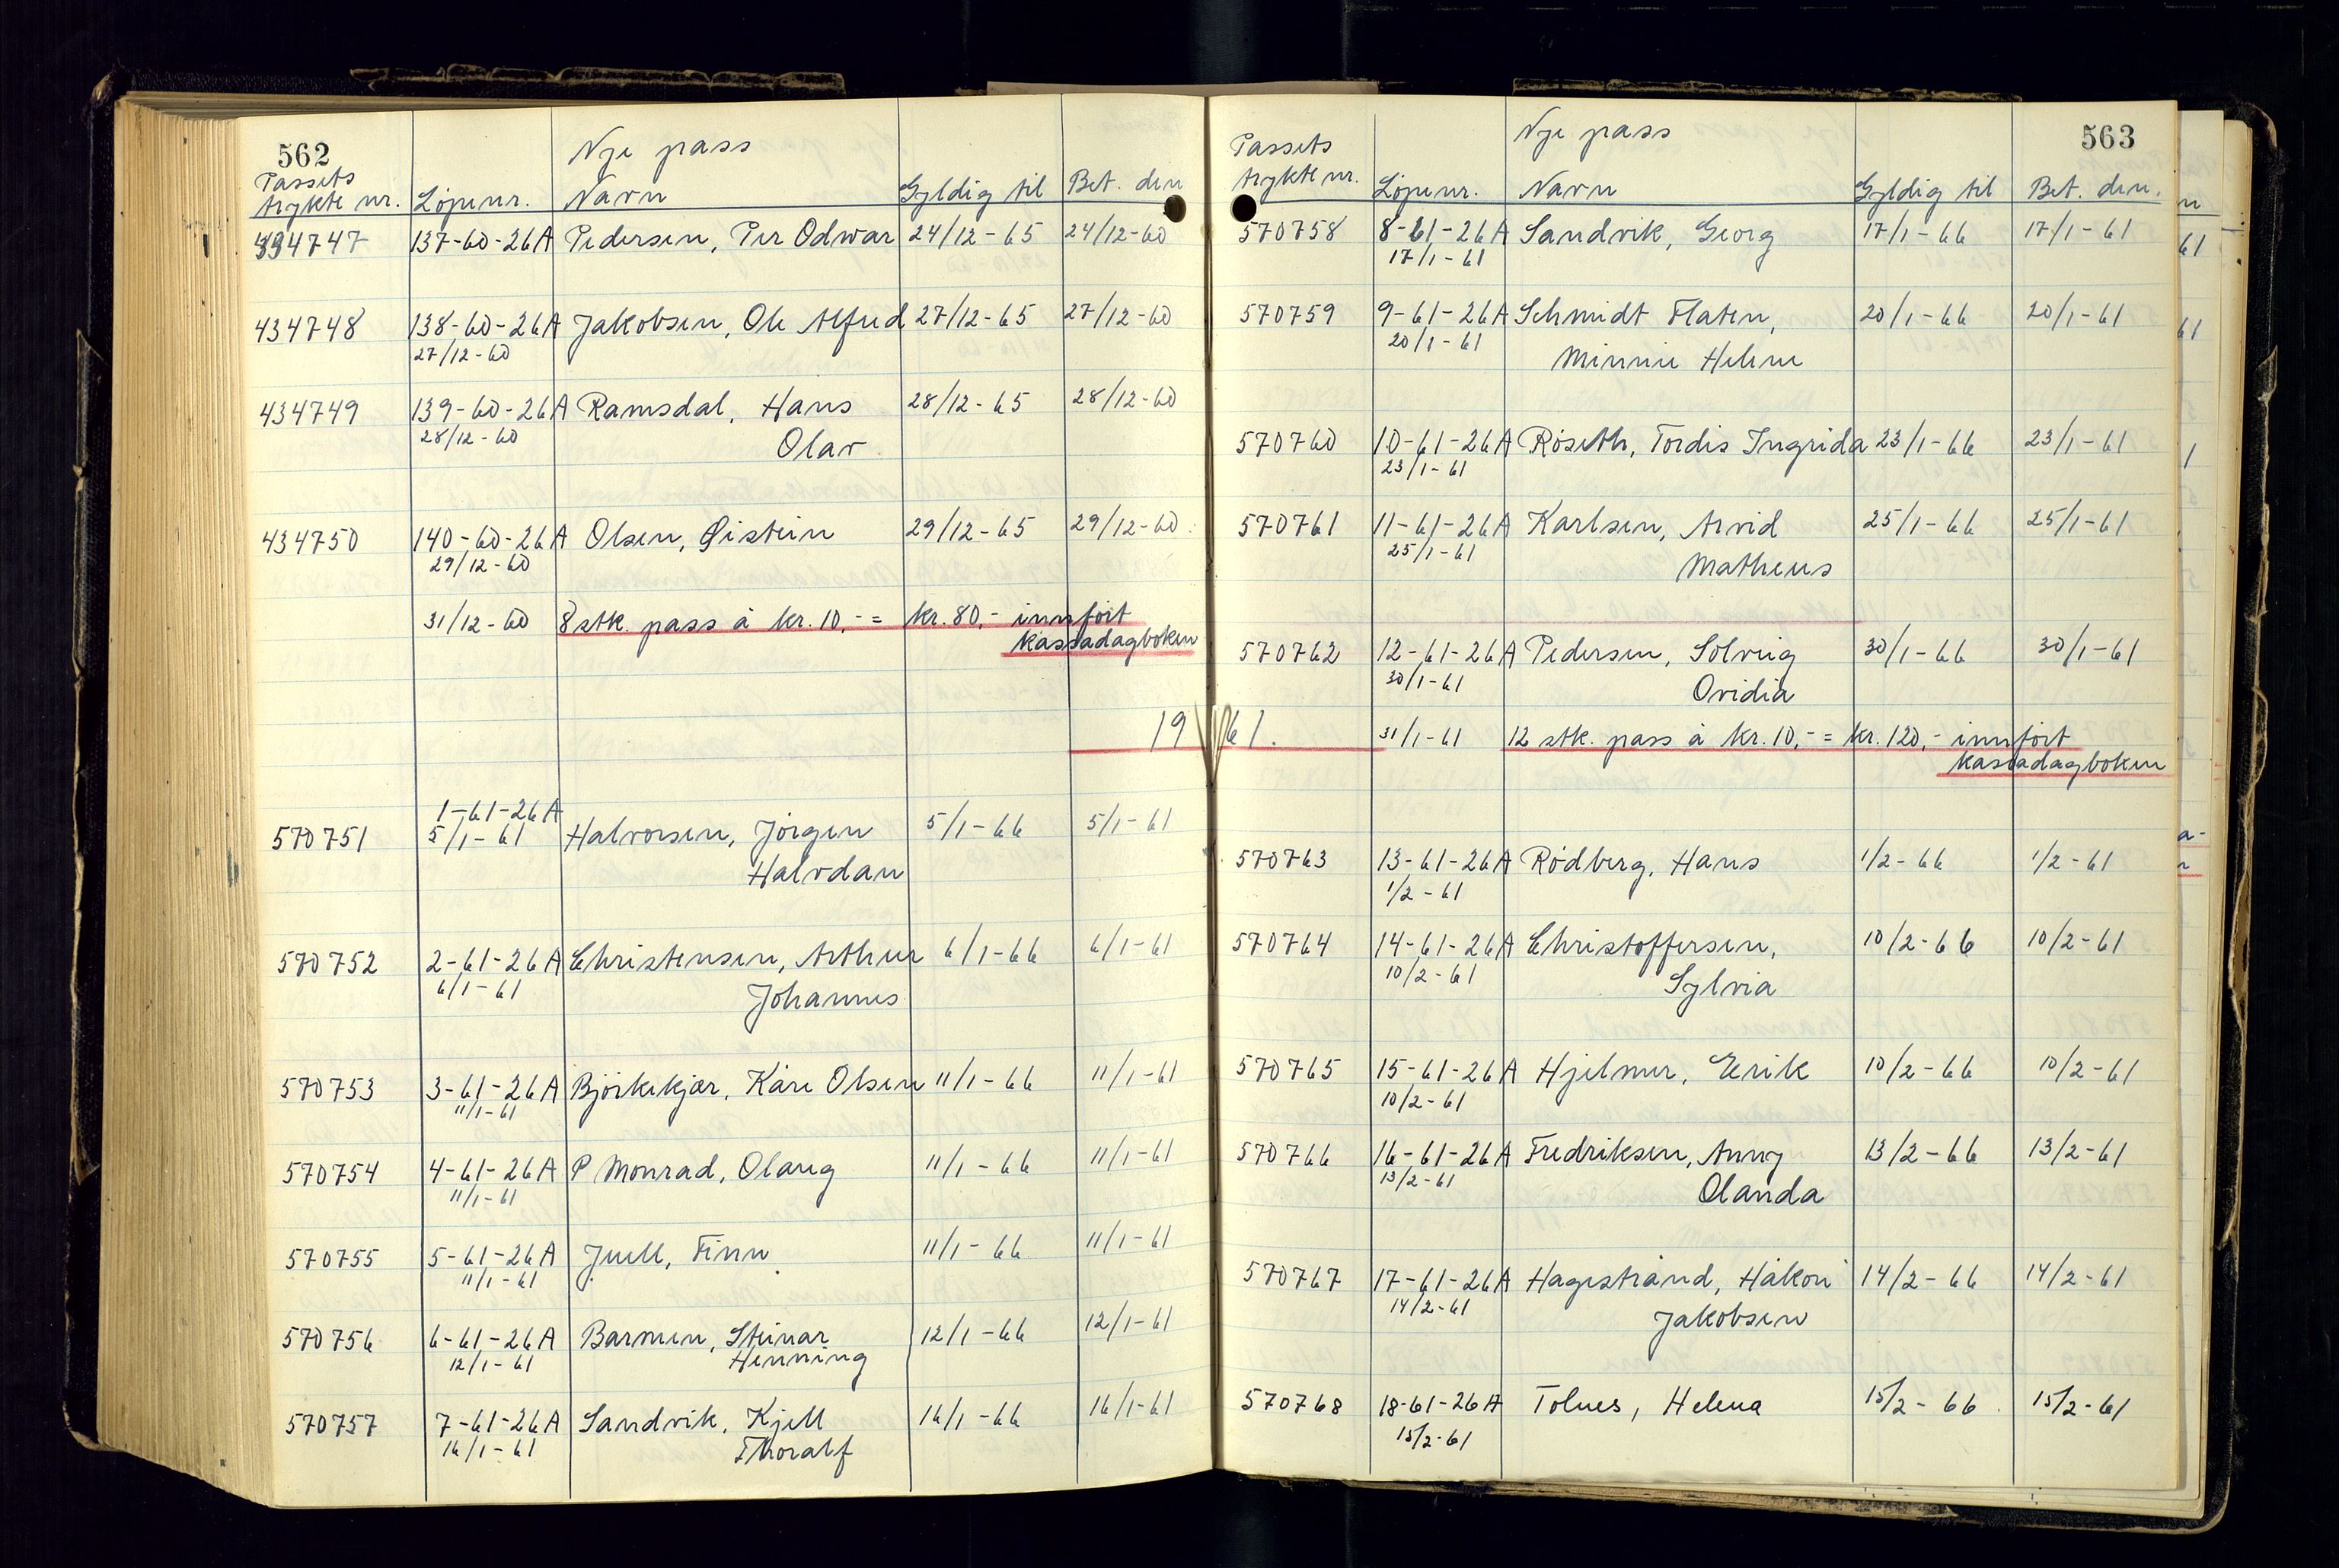 562
Nye pass
Passets
trykte nr. Löpenr. Navn Gyldig til Bet. den
434747 137-60-26A Pedersen, Per Odvar 24/12-65 24/12-60
434748 138-60-26A Jakobsen, Ole Alfred 27/12-65 27/12-60
27/12-60
434749 139-60-26A Ramsdal, Hans 28/12-65 28/12-60
28/12-60 Olav
434750 140-60-26A Olsen, Øistein 29/12-65 29/12-60
29/12-60
31/12-60 8 stk. pass à kr. 10,- = kr. 80,- innfört
kassadagboken
1961.
1-61-26A
570751 5/1-61 Halvorsen, Jörgen 5/1-66 5/1-61
Halvdan
570752 2-61-26A Christensen, Arthur 6/1-66 6/1-61
6/1-61 Johannes
570753 3-61-26A Björkekjær, Kåre Olsen 11/1-66 11/1-61
11/1-61
570754 4-61-26A P Monrad, Olaug 11/1-66 11/1-61
11/1-61
570755 5-61-26A Juell, Finn 11/1-66 11/1-61
11/1-61
570756 6-61-26A Barmen, Steinar 12/1-66 12/1-61
12/1-61 Henning
570757 7-61-26A Sandvik, Kjell 16/1-66 16/1-61
16/1-61 Thoralf
563
Nye pass
Passets
trykte nr. Löpenr. Navn Gyldig til Bet. den.
570758 8-61-26A Sandvik, Georg 17/1-66 17/1-61
17/1-61
570759 9-61-26A Schmidt Flaten, 20/1-66 20/1-61
20/1-61 Minnie Helene
570760 10-61-26A Röseth, Tordis Ingrida 23/1-66 23/1-61
23/1-61
570761 11-61-26A Karlsen, Arvid 25/1-66 25/1-61
25/1-61 Matheus
570762 12-61-26A Pedersen, Solveig 30/1-66 30/1-61
30/1-61 Ovidia
31/1-61 12 stk. pass à kr. 10,- = kr. 120,- innfört
kassadagboken
570763 13-61-26A Rödberg, Hans 1/2-66 1/2-61
1/2-61
570764 14-61-26A Christoffersen, 10/2-66 10/2-61
10/2-61 Sylvia
570765 15-61-26A Hjelmer, Eerik 10/2-66 10/2-61
10/2-61
570766 16-61-26A Fredriksen, Anny 13/2-66 13/2-61
13/2-61 Olanda
570767 17-61-26A Hagestrand, Håkon 14/2-66 14/2-61
14/2-61 Jakobsen
570768 18-61-26A Tolnes, Helena 15/2-66 15/2-61
15/2-61